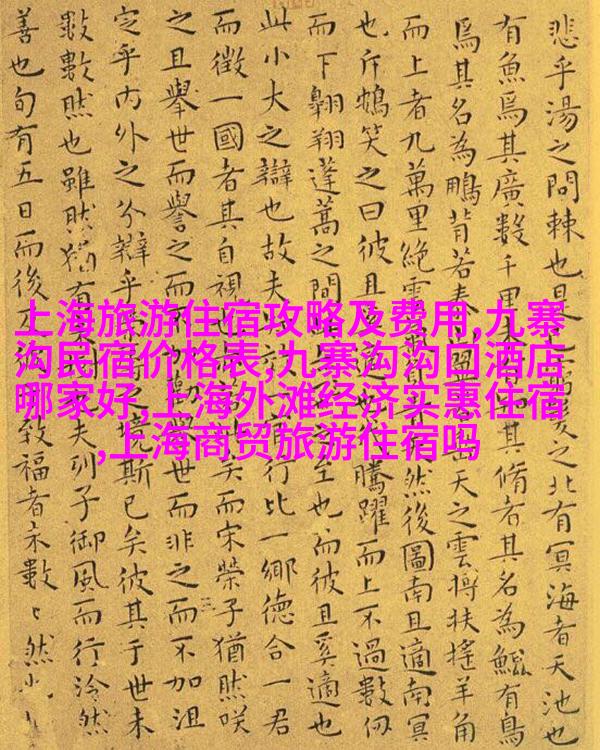 上海旅游住宿攻略及费用,九寨
沟民宿价格表,九寨沟沟口酒店
哪家好,上海外滩经济实惠住宿
,上海商贸旅游住宿吗
悲乎湯之問棘也是之北有冥海者天池也
有魚焉其廣數千里未其脩者其名為鯤有鳥
焉其名為鵬背若泰山天之雲摶扶搖羊角
而上者九萬里絕雲然後圖南且適南冥
也斥鴳笑之曰彼且騰躍而上不過數仞
而下翱翔蓬蒿之間之至也而彼且奚適也
此小大之辯也故夫行比一鄉德合一君
而徵一國者其自視也矣而宋榮子猶然咲
之且舉世而譽之而不勸舉世而非之而不加沮
定乎内外之分辯乎之境斯已矣彼其于世未
數數然也雖然猶有夫列子御風而行泠然
善也旬有五日而後致福者未數々然